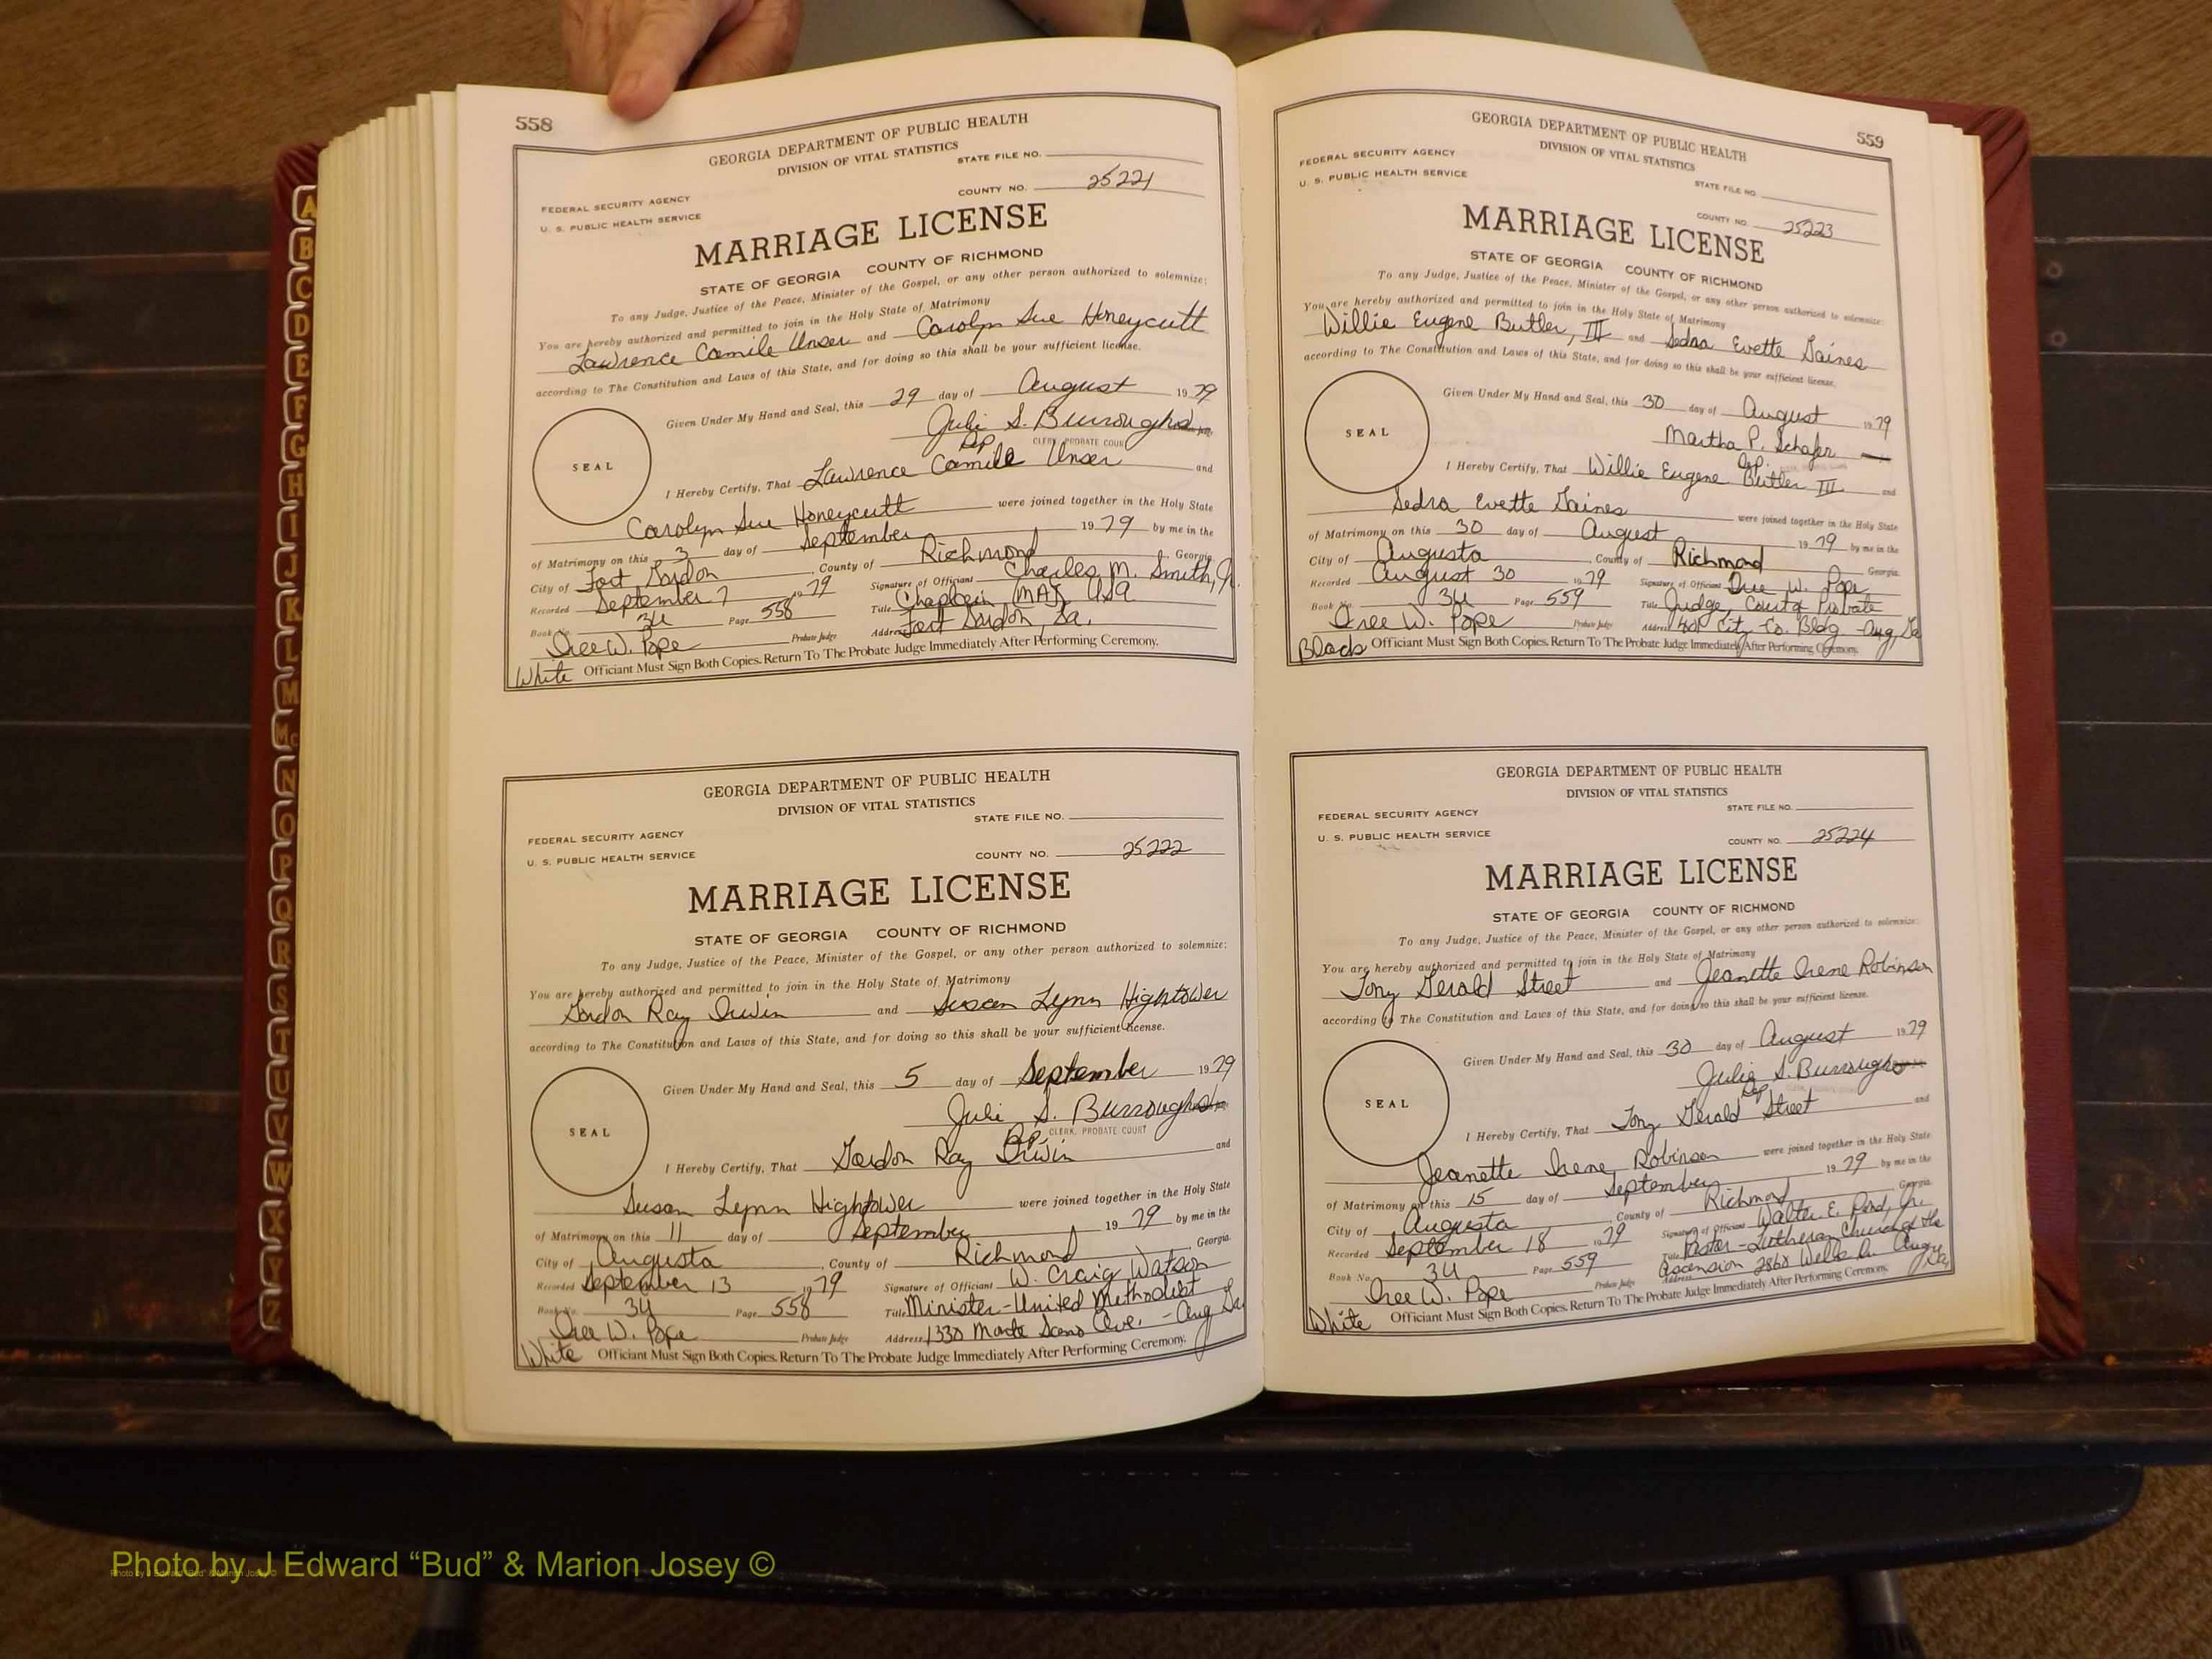 558
GEORGIA DEPARTMENT OF PUBLIC HEALTH
DIVISION OF VITAL STATISTICS
STATE FILE NO.
FEDERAL SECURITY AGENCY
COUNTY NO. 25221
U. S. PUBLIC HEALTH SERVICE
MARRIAGE LICENSE
STATE OF GEORGIA COUNTY OF RICHMOND
To any Judge, Justice of the Peace, Minister of the Gospel, or any other person authorized to solemnize:
You are hereby authorized and permitted to join in the Holy State of Matrimony
Lawrence Camile Unser and Carolyn Sue Honeycutt
according to The Constitution and Laws of this State, and for doing so this shall be your sufficient license.
Given Under My Hand and Seal, this 29 day of August 1979
Juli S. Burroughs
Dep CLERK, PROBATE COURT
SEAL
I Hereby Certify, That Lawrence Camile Unser and
Carolyn Sue Honeycutt were joined together in the Holy State
of Matrimony on this 3 day of September 1979 by me in the
City of Fort Gordon, County of Richmond, Georgia
Recorded September 7 1979 Signature of Officiant Charles M. Smith, Jr.
Book No. 34 Page 558 Title Chaplain (MAJ) USA
Iree W. Pope Probate Judge Address Fort Gordon, Ga.
White Officiant Must Sign Both Copies. Return To The Probate Judge Immediately After Performing Ceremony.
GEORGIA DEPARTMENT OF PUBLIC HEALTH
DIVISION OF VITAL STATISTICS
STATE FILE NO.
FEDERAL SECURITY AGENCY
U. S. PUBLIC HEALTH SERVICE
COUNTY NO. 25222
MARRIAGE LICENSE
STATE OF GEORGIA COUNTY OF RICHMOND
To any Judge, Justice of the Peace, Minister of the Gospel, or any other person authorized to solemnize:
You are hereby authorized and permitted to join in the Holy State of Matrimony
Gordon Ray Irwin and Susan Lynn Hightower
according to The Constitution and Laws of this State, and for doing so this shall be your sufficient license.
Given Under My Hand and Seal, this 5 day of September 1979
Juli S. Burroughs
Dp. CLERK, PROBATE COURT
SEAL
I Hereby Certify, That Gordon Ray Irwin and
Susan Lynn Hightower were joined together in the Holy State
of Matrimony on this 11 day of September 1979 by me in the
City of Augusta, County of Richmond, Georgia.
Recorded September 13 1979 Signature of Officiant W. Craig Watson
Book No. 34 Page 558 Title Minister-United Methodist
Iree W. Pope Probate Judge Address 1330 Monte Sano Ave. - Aug Ga
White Officiant Must Sign Both Copies. Return To The Probate Judge Immediately After Performing Ceremony.
559
GEORGIA DEPARTMENT OF PUBLIC HEALTH
DIVISION OF VITAL STATISTICS
FEDERAL SECURITY AGENCY
U. S. PUBLIC HEALTH SERVICE
STATE FILE NO.
COUNTY NO. 25223
MARRIAGE LICENSE
STATE OF GEORGIA COUNTY OF RICHMOND
To any Judge, Justice of the Peace, Minister of the Gospel, or any other person authorized to solemnize:
You are hereby authorized and permitted to join in the Holy State of Matrimony
Willie Eugene Butler, III and Sedra Evette Gaines
according to The Constitution and Laws of this State, and for doing so this shall be your sufficient license.
Given Under My Hand and Seal, this 30 day of August 1979
Martha P. Schafer
Dp.
SEAL
I Hereby Certify, That Willie Eugene Butler III and
Sedra Evette Gaines were joined together in the Holy State
of Matrimony on this 30 day of August 1979 by me in the
City of Augusta, County of Richmond Georgia.
Recorded August 30 1979 Signature of Officiant Iree W. Pope
Book No. 34 Page 559 Title Judge, Court of Probate
Iree W. Pope Probate Judge Address 401 City-Co. Bldg -Aug, Ga
Black Officiant Must Sign Both Copies. Return To The Probate Judge Immediately After Performing Ceremony.
GEORGIA DEPARTMENT OF PUBLIC HEALTH
DIVISION OF VITAL STATISTICS
STATE FILE NO.
FEDERAL SECURITY AGENCY
U. S. PUBLIC HEALTH SERVICE
COUNTY NO. 25224
MARRIAGE LICENSE
STATE OF GEORGIA COUNTY OF RICHMOND
To any Judge, Justice of the Peace, Minister of the Gospel, or any other person authorized to solemnize:
You are hereby authorized and permitted to join in the Holy State of Matrimony
Tony Gerald Street and Jeanette Irene Robinson
according to The Constitution and Laws of this State, and for doing so this shall be your sufficient license.
Given Under My Hand and Seal, this 30 day of August 1979
Julia S. Burroughs
Dep
SEAL
I Hereby Certify, That Tony Gerald Street and
Jeanette Irene Robinson were joined together in the Holy State
of Matrimony on this 15 day of September 1979 by me in the
City of Augusta, County of Richmond Georgia
Recorded September 18 1979 Signature of Officiant Walter E. Jr.
Book No. 34 Page 559 Title Pastor-Lutheran Church of the
Iree W. Pope Probate Judge Address Ascension 2868 Augu Ga.
White Officiant Must Sign Both Copies. Return To The Probate Judge Immediately After Performing Ceremony.
A
B
C
D
E
F
G
H
I
J
K
L
M
Mc
N
O
P
Q
R
S
T
U
V
W
X
Y
Z
Photo by J Edward “Bud” & Marion Josey ©
Photo by J Edward “Bud” & Marion Josey ©